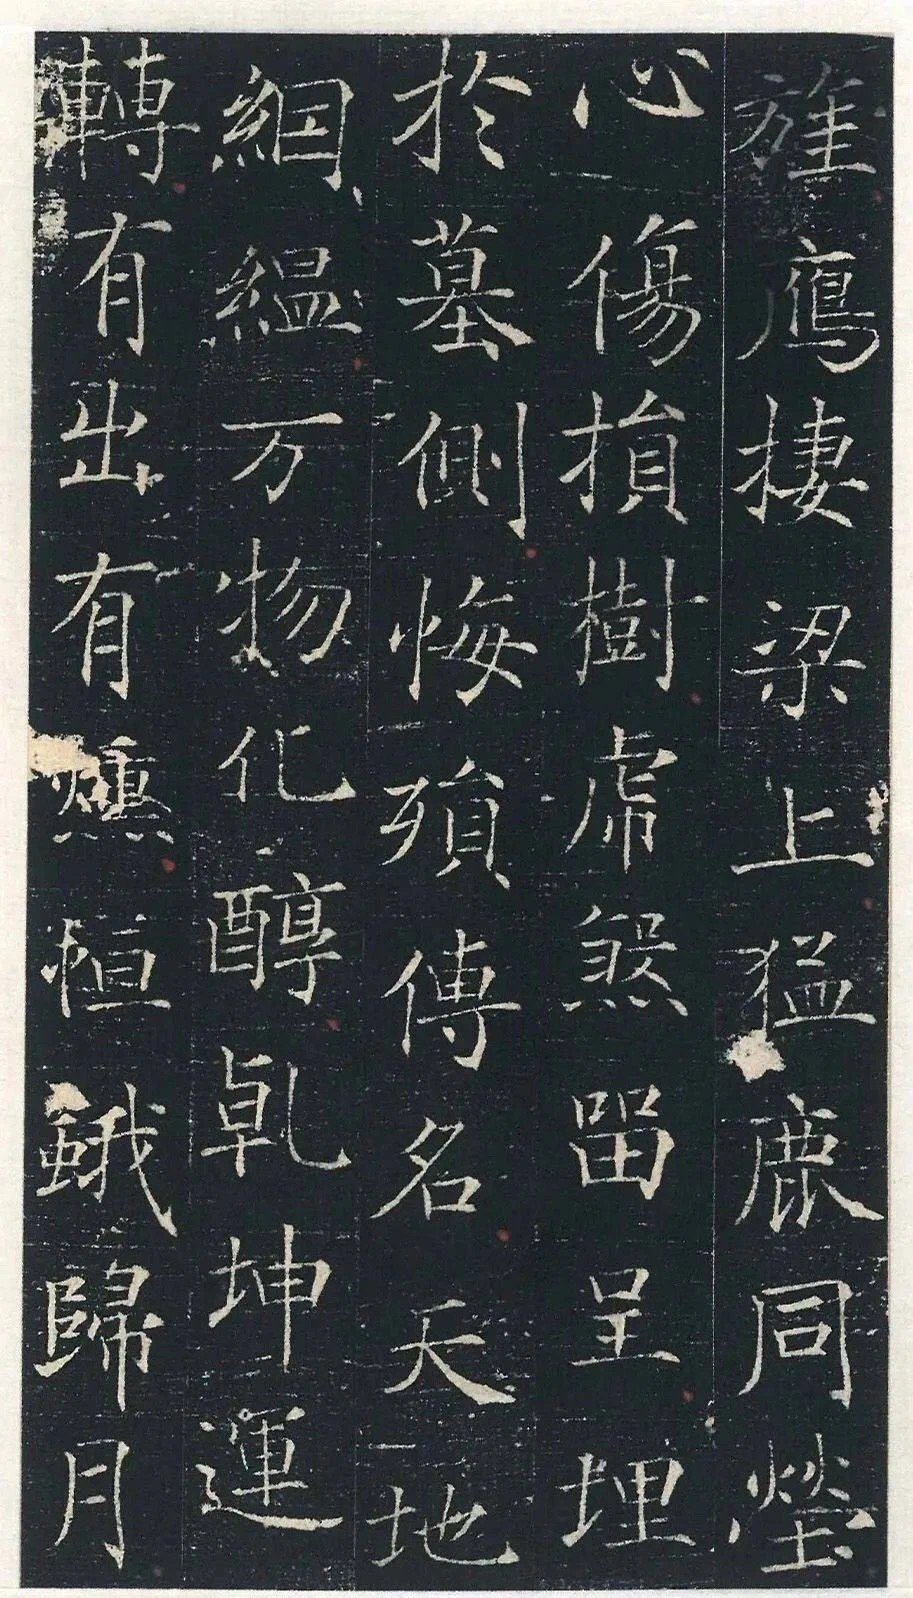 旌鷹棲梁上猛鹿同塋
心傷損樹虎煞留呈埋
於墓側悔殞傳名天地
絪縕万物化醇乾坤運
轉有出有恒蛾歸月